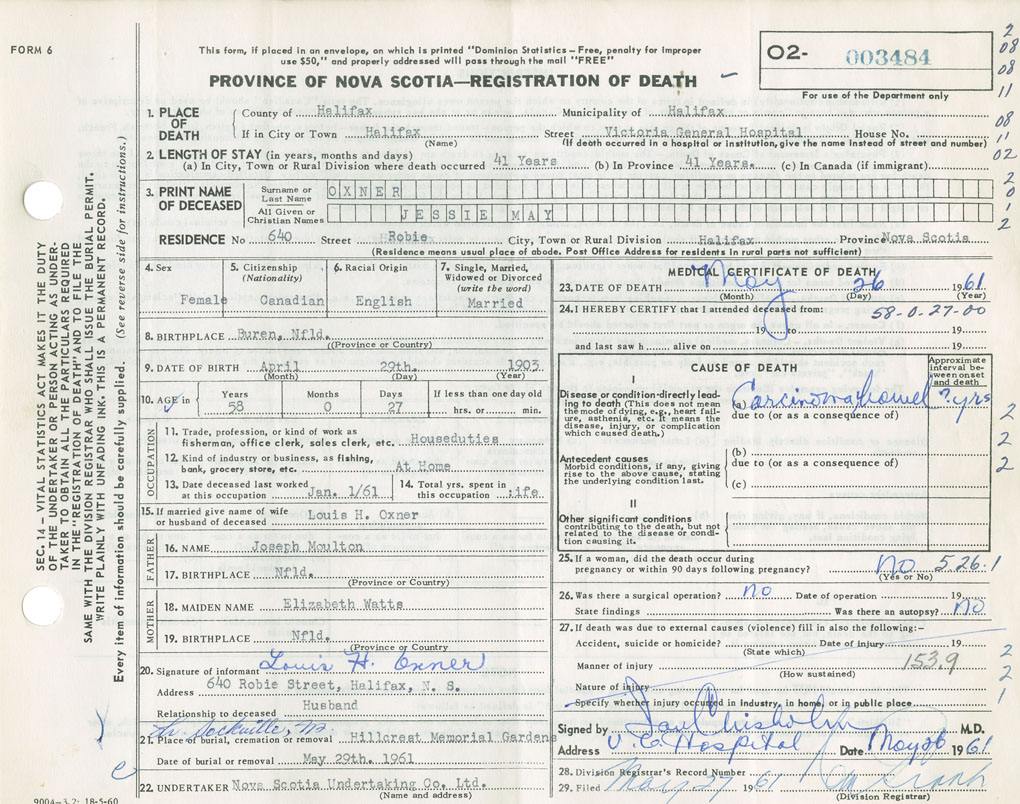 FORM 6
This form, if placed in an envelope, on which is printed "Dominion Statistics – Free, penalty for improper
use $50," and properly addressed will pass through the mail "FREE"
PROVINCE OF NOVA SCOTIA—REGISTRATION OF DEATH
02- 003484
For use of the Department only
2
08
08
11
08
11
02
2
0
1
2
SEC. 14 – VITAL STATISTICS ACT MAKES IT THE DUTY
OF THE UNDERTAKER OR PERSON ACTING AS UNDER-
TAKER TO OBTAIN ALL THE PARTICULARS REQUIRED
IN THE "REGISTRATION OF DEATH" AND TO FILE THE
SAME WITH THE DIVISION REGISTRAR WHO SHALL ISSUE THE BURIAL PERMIT.
WRITE PLAINLY WITH UNFADING INK. THIS IS A PERMANENT RECORD.
Every item of information should be carefully supplied. (See reverse side for instructions.)
1. PLACE OF DEATH
County of Halifax Municipality of Halifax
If in City or Town Halifax Street Victoria General Hospital House No.
(Name) (If death occurred in a hospital or institution, give the name instead of street and number)
2. LENGTH OF STAY (in years, months and days)
(a) In City, Town or Rural Division where death occurred 41 Years (b) In Province 41 Years. (c) In Canada (if immigrant)
3. PRINT NAME OF DECEASED
Surname or Last Name OXNER
All Given or Christian Names JESSIE MAY
RESIDENCE No 640 Street Robie City, Town or Rural Division Halifax Province Nova Scotia
(Residence means usual place of abode. Post Office Address for residents in rural parts not sufficient)
4. Sex
Female
5. Citizenship
(Nationality)
Canadian
6. Racial Origin
English
7. Single, Married,
Widowed or Divorced
(write the word)
Married
8. BIRTHPLACE Buren, Nfld.
((Province or Country)
9. DATE OF BIRTH April 29th. 1903
(Month) (Day) (Year)
10. AGE in
Years Months Days If less than one day old
58 0 27 hrs. or min.
OCCUPATION
11. Trade, profession, or kind of work as
fisherman, office clerk, sales clerk, etc. Houseduties
12. Kind of industry or business, as fishing,
bank, grocery store, etc. At Home
13. Date deceased last worked
at this occupation Jan. 1/61
14. Total yrs. spent in
this occupation :ife
15. If married give name of wife
or husband of deceased Louis H. Oxner
FATHER
16. NAME Joseph Moulton
17. BIRTHPLACE Nfld.
(Province or Country)
MOTHER
18. MAIDEN NAME Elizabeth Watts
19. BIRTHPLACE Nfld.
(Province or Country
20. Signature of informant Louis H. Oxner
Address 640 Robie Street, Halifax, N. S.
Relationship to deceased Husband
21. Place of burial, cremation or removal Hillcrest Memorial Gardens
Date of burial or removal May 29th. 1961
22. UNDERTAKER Nova Scotia Undertaking Co. Ltd.
(Name and address)
9004-3.2: 18-5-60
MEDICAL CERTIFICATE OF DEATH
23. DATE OF DEATH May 26 1961
(Month) (Day) (Year)
24. I HEREBY CERTIFY that I attended deceased from: 58-0-27-00
19 to 19
and last saw h alive on 19
CAUSE OF DEATH
Approximate
interval be-
tween onset
and death
I
Disease or condition directly lead-
ing to death (This does not mean
the mode of dying, e.g., heart fail-
ure, asthenia, etc. It means the
disease, injury, or complication
which caused death.)
(a) Carcinoma bowel ? yrs
due to (or as a consequence of)
Antecedent causes
Morbid conditions, if any, giving
rise to the above cause, stating
the underlying condition last.
(b)
due to (or as a consequence of)
(c)
II
Other significant conditions
contributing to the death, but not
related to the disease or condi-
tion causing it.
2
2
2
25. If a woman, did the death occur during
pregnancy or within 90 days following pregnancy? No 526.1
(Yes or No)
26. Was there a surgical operation? NO Date of operation 19
State findings Was there an autopsy? NO
27. If death was due to external causes (violence) fill in also the following:–
Accident, suicide or homicide? Date of injury 19
(State which)
Manner of injury 153.9
(How sustained)
Nature of injury
Specify whether injury occurred in industry, in home, or in public place
2
2
1
Signed by Chisholm M.D.
Address V. G. Hospital Date May 26 1961
28. Division Registrar's Record Number
29. Filed May 27 1961
(Division Registrar)